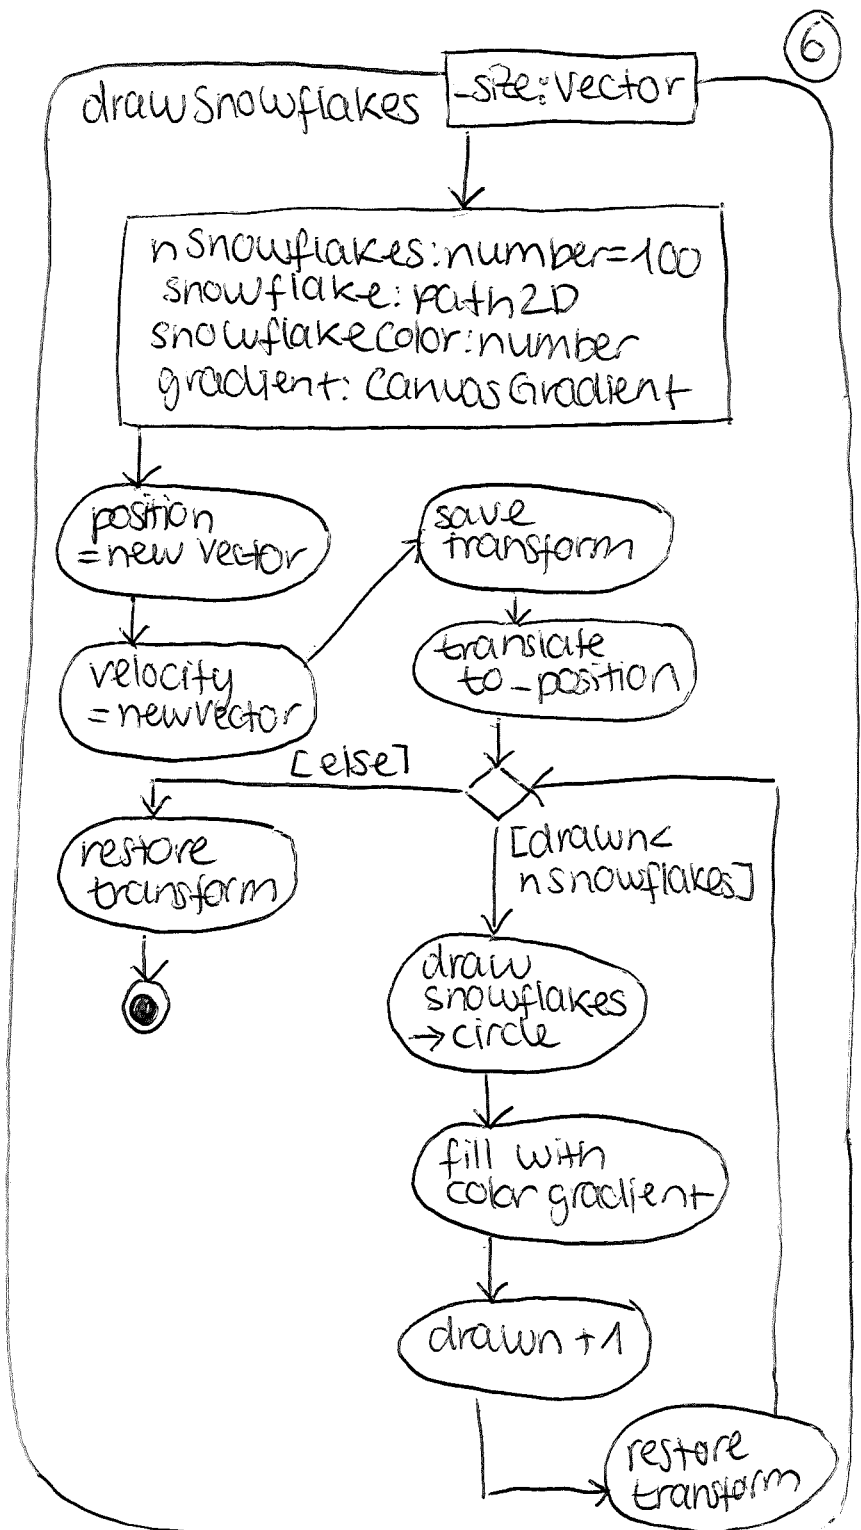 6
drawSnowflakes
_size: Vector
nSnowflakes: number = 100
snowflake: path2D
snowflakecolor: number
gradient: CanvasGradient
position
= new vector
save
transform
velocity
= new vector
translate
to _position
[else]
[drawn<
nsnowflakes]
restore
transform
draw
snowflakes
→ circle
fill with
color gradient
drawn + 1
restore
transform